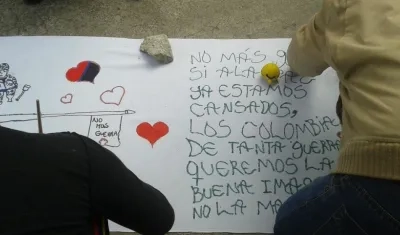 NO MÁS
SI A LA
YA ESTAMOS
CANSADOS,
LOS
DE TANTA GUERRA
QUEREMOS LA
BUENA
NO LA
NO
MAS
GUERRA